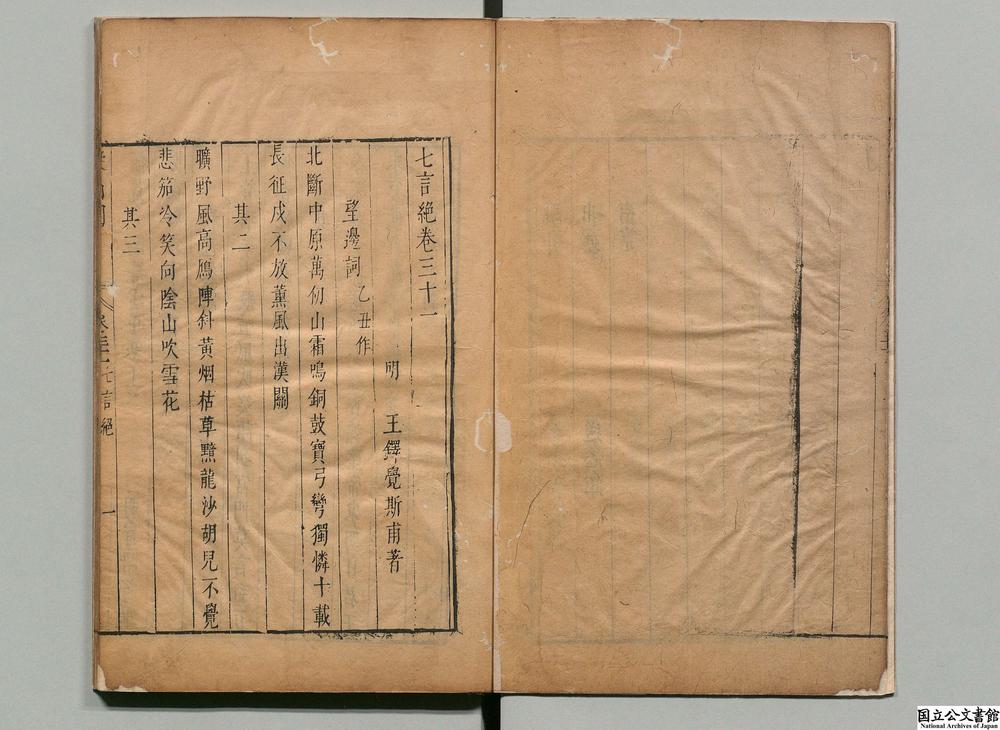 七言絕卷三十一
明　王鐸覺斯甫著
望邊詞乙丑作
北斷中原萬仞山霜鳴銅鼓寶弓彎獨憐十載
長征戍不放薰風出漢關
其二
曠野風高鴈陣斜黃烟枯草黯龍沙胡兒不覺
悲笳冷笑向陰山吹雪花
其三
卷三十一七言絕
一
国立公文書館
National Archives of Japan